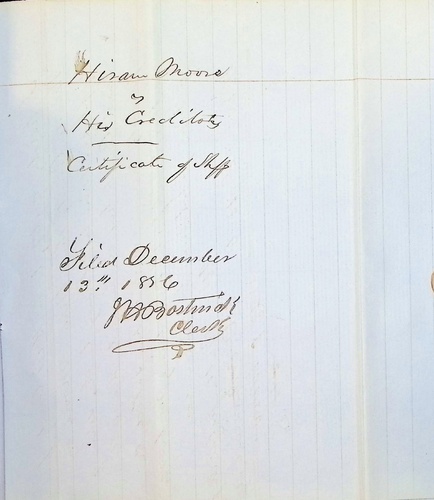 Hiram Moore
vs
His Creditors
Certificate of Shff
Filed December
13th 1856
Bostwick
Clerk